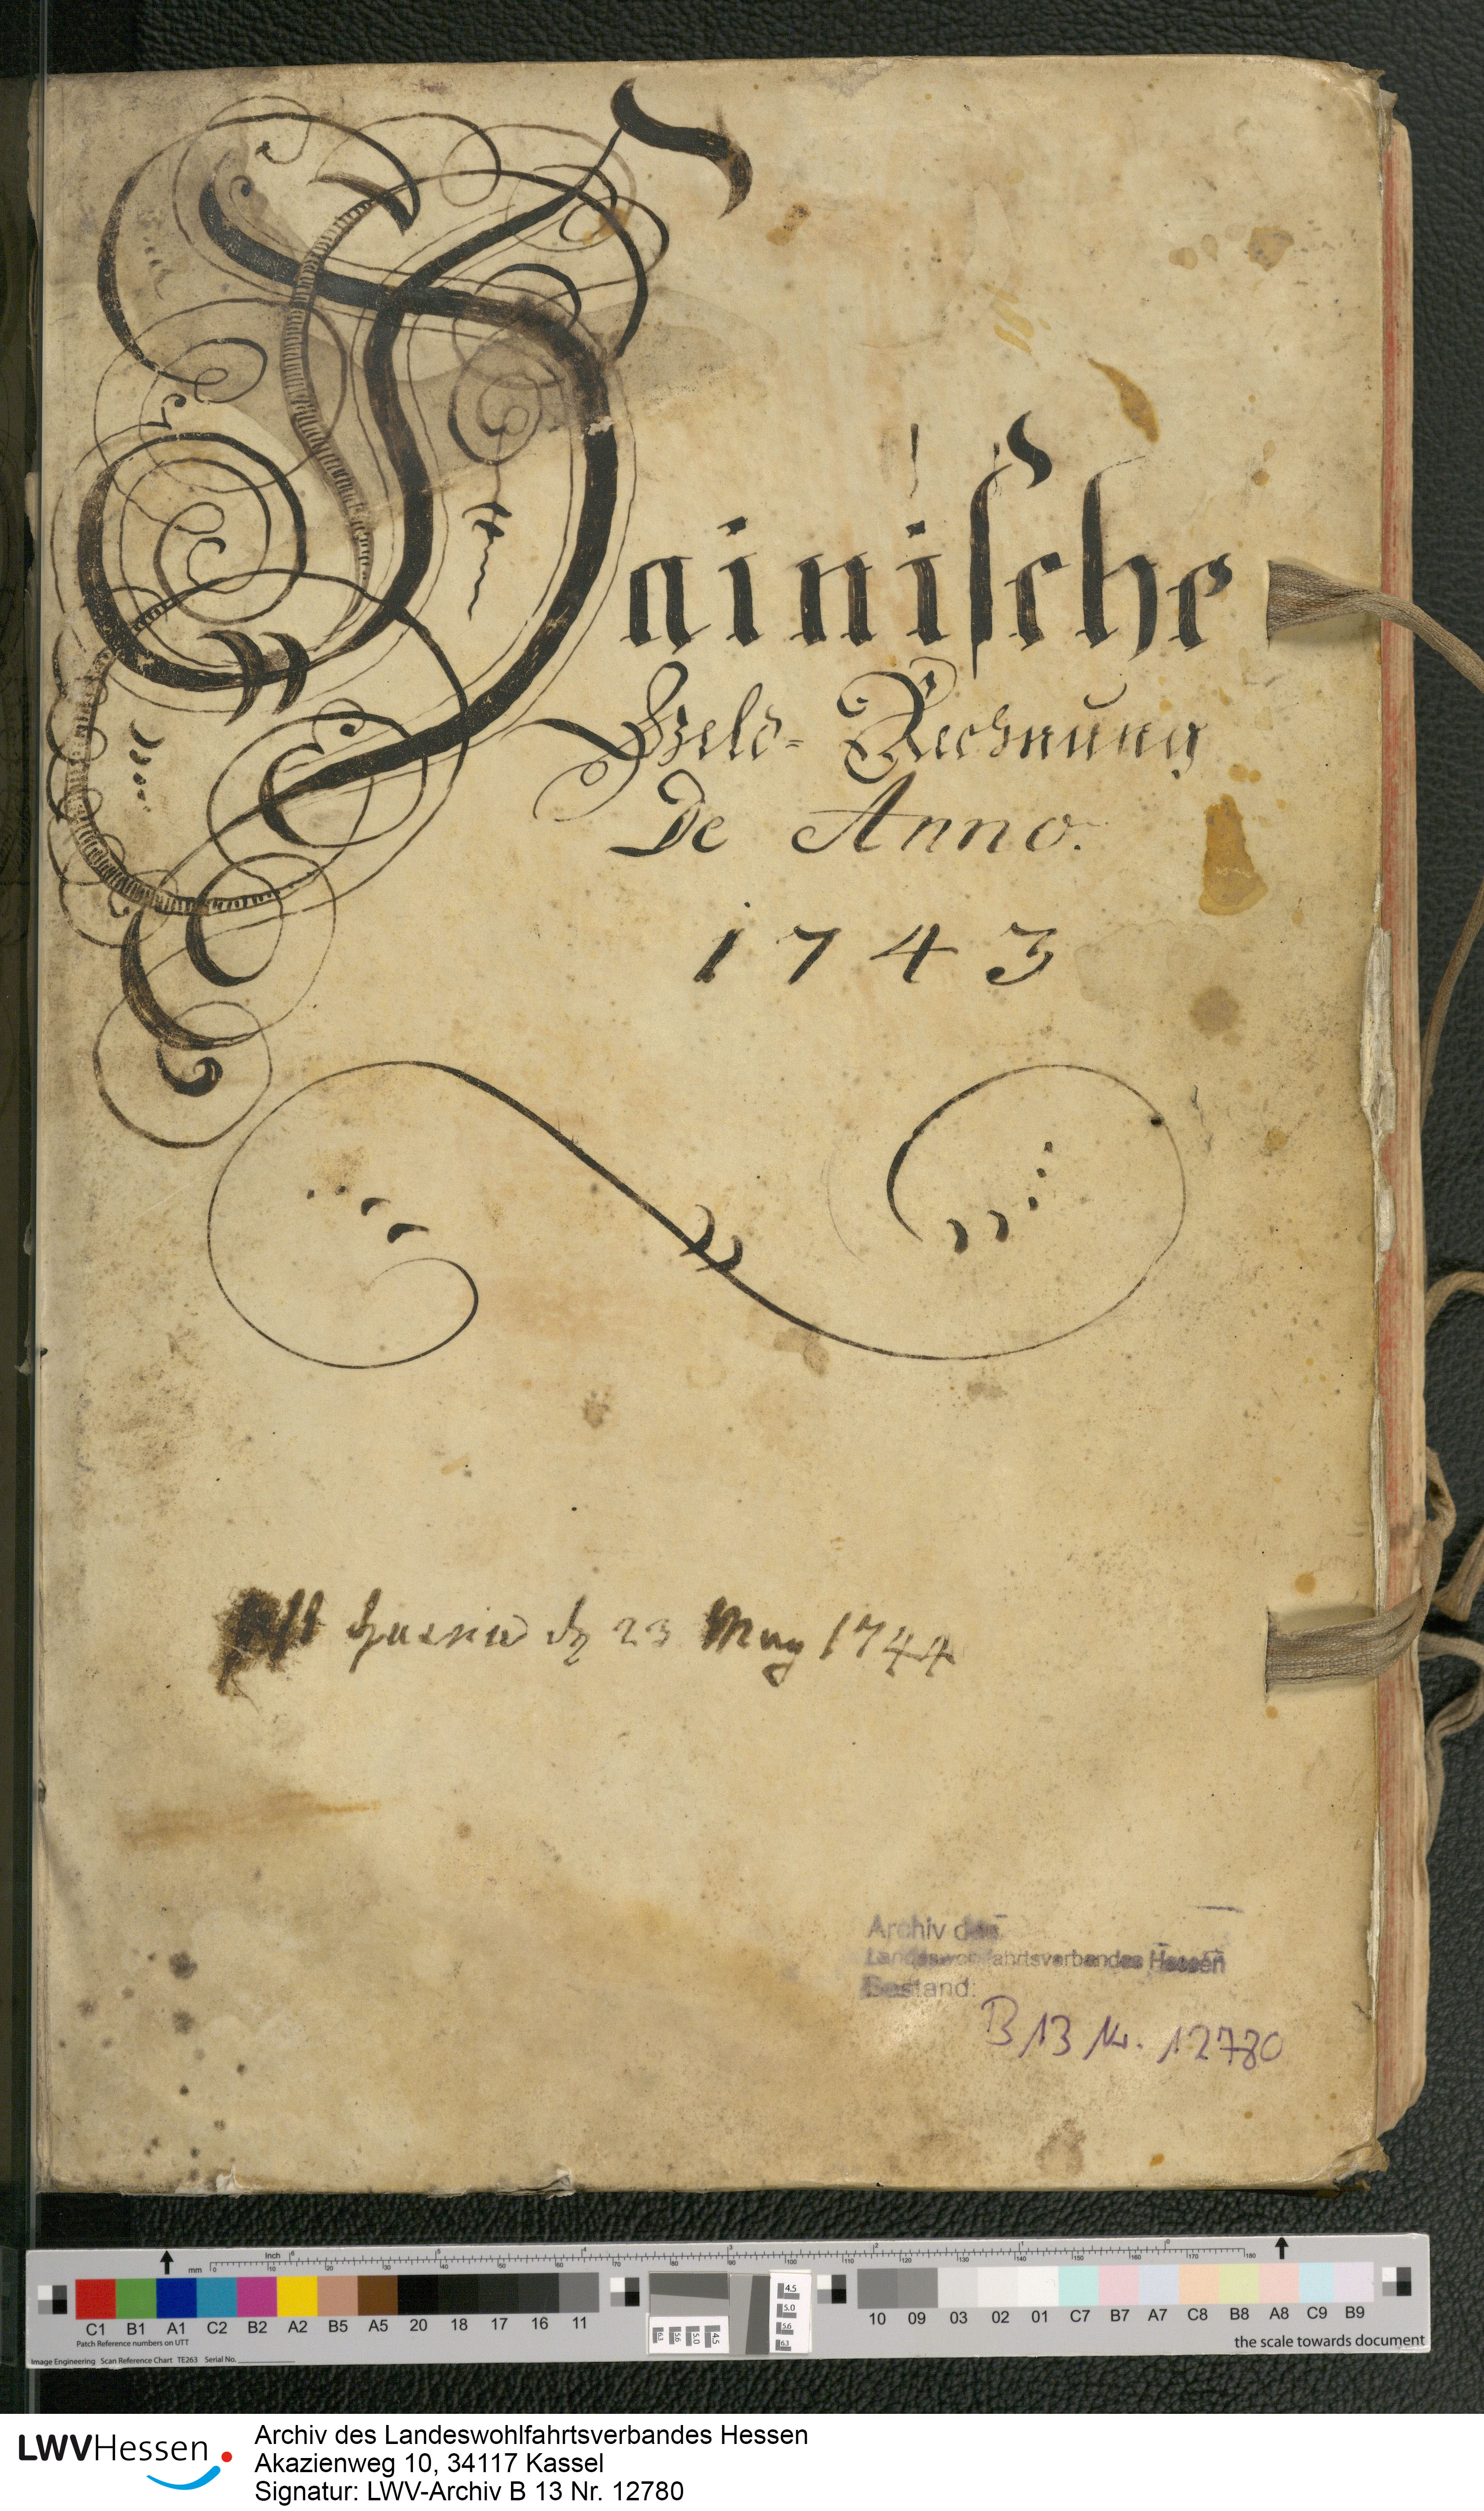 Hainische
Geld- Rechnung
De Anno.
1743
23 May 1744
Archiv des
Landeswohlfahrtsverbandes Hessen
Bestand:
B 13 Nr. 12780
Inch
mm
C1 B1 A1 C2 B2 A2 B5 A5 20 18 17 16 11
10 09 03 02 01 C7 B7 A7 C8 B8 A8 C9 B9
Patch Reference numbers on UTT
the scale towards document
Image Engineering Scan Reference Chart TE263 Serial No.
LWVHessen
Archiv des Landeswohlfahrtsverbandes Hessen
Akazienweg 10, 34117 Kassel
Signatur: LWV-Archiv B 13 Nr. 12780